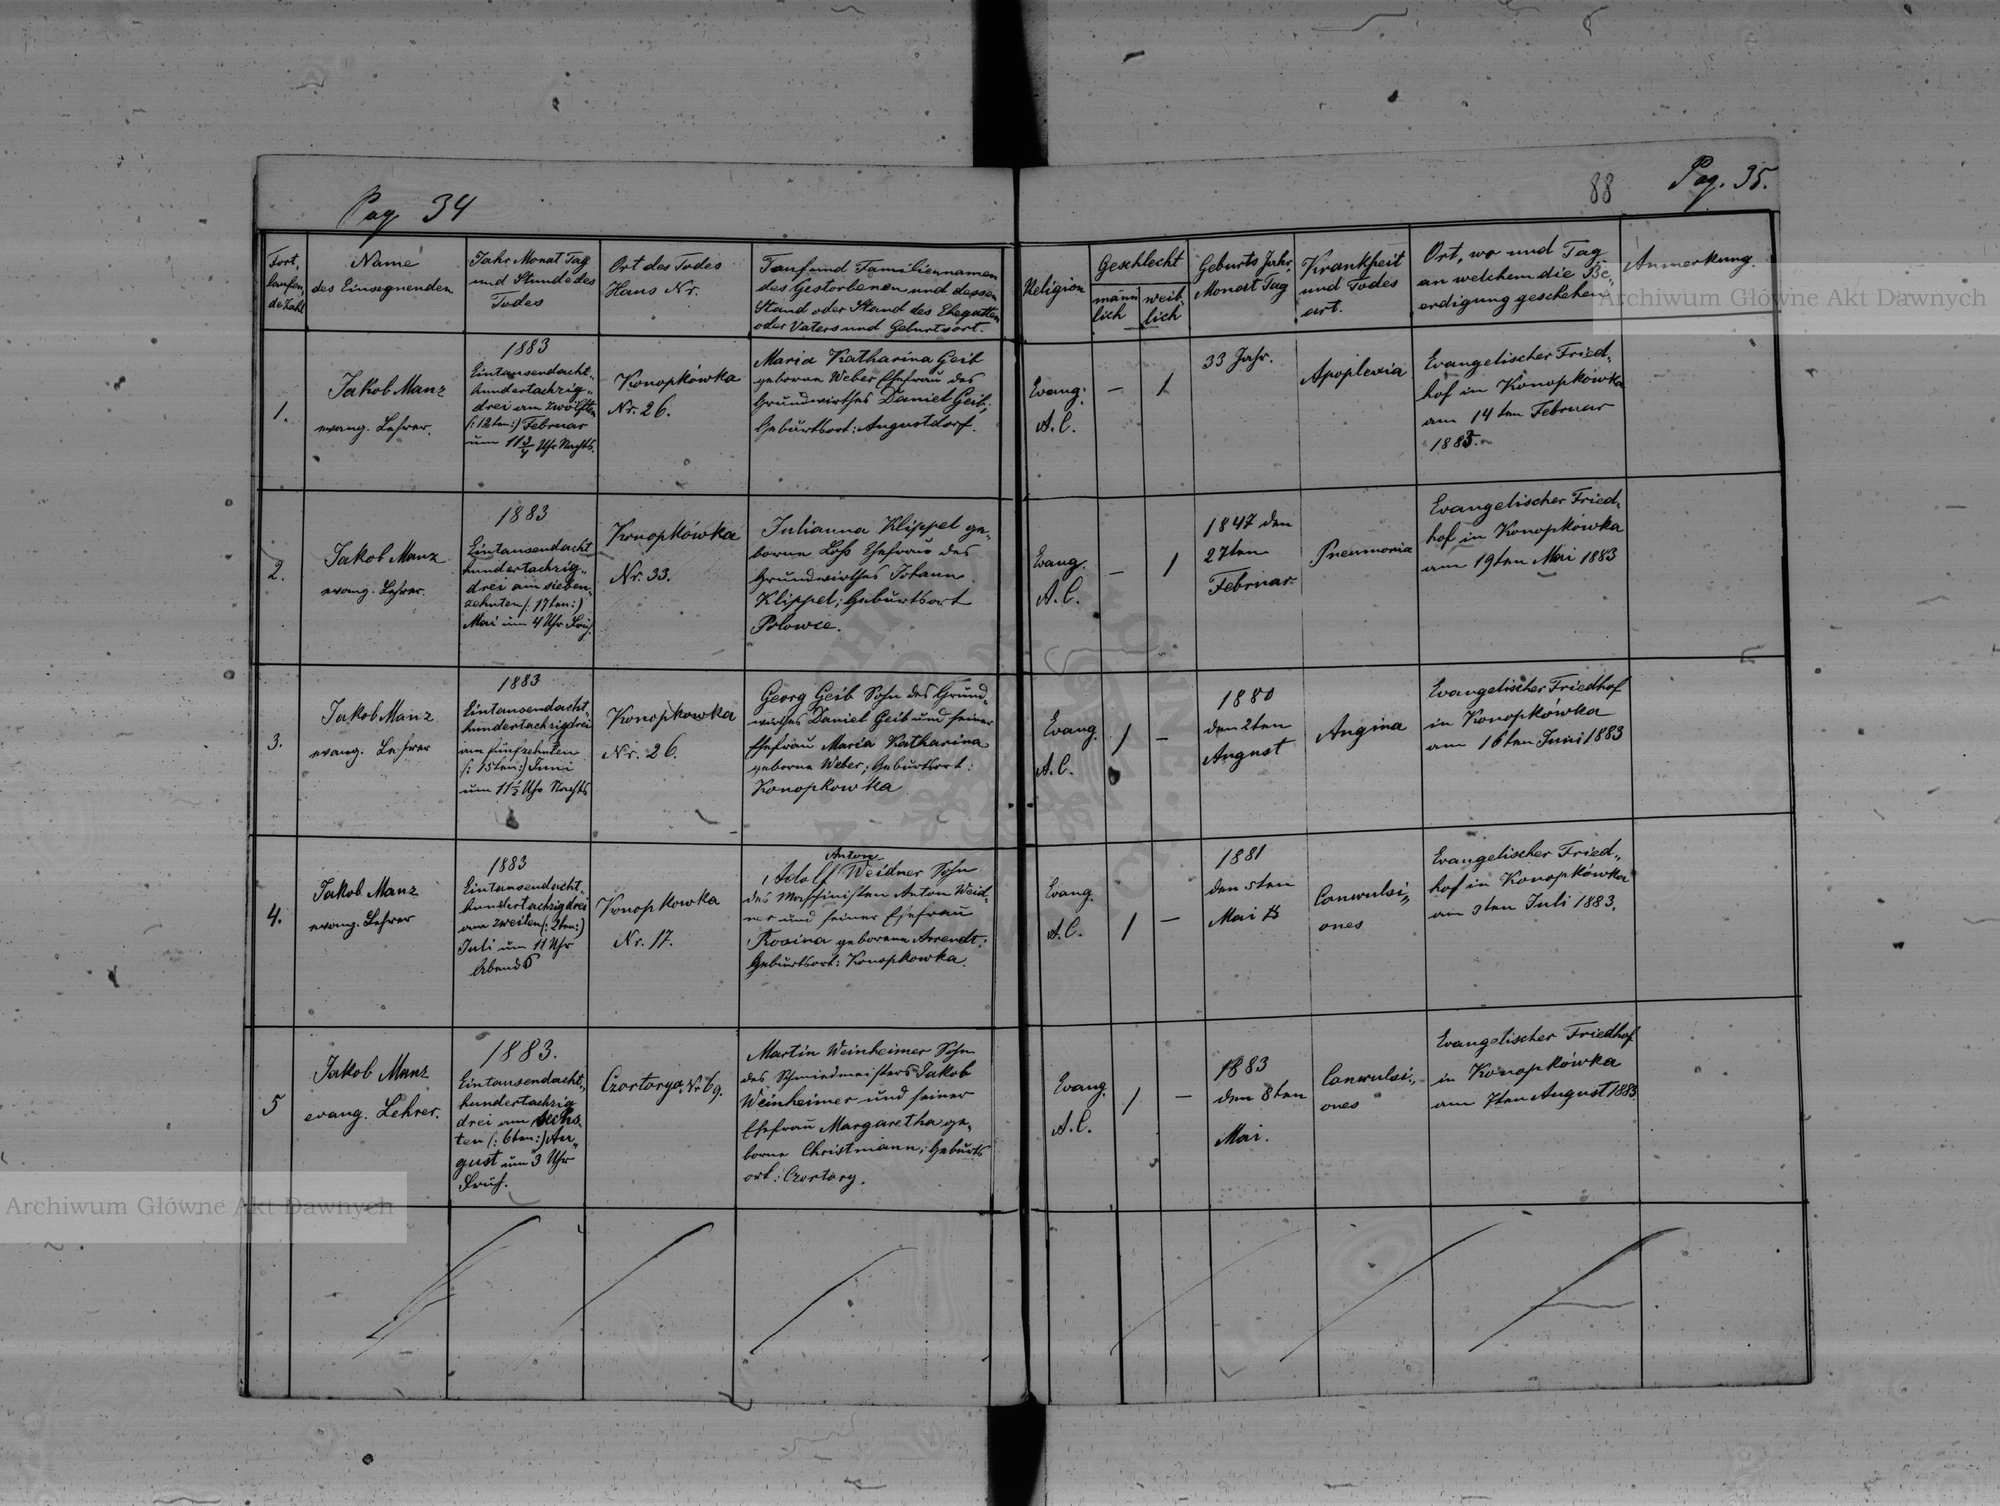 Pag. 34
Fort,
laufen,
de Zahl
Name
des Einsegnenden
Jahr Monat Tag
und Stunde des
Todes
Ort des Todes
Haus Nr.
Tauf und Familiennamen
des Gestorbenen und dessen
Stand oder Stand des Ehegatten
oder Vaters und Geburtsort.
1.
Jakob Manz
evang. Lehrer.
1883
Eintausendacht„
hundertachzig„
drei am zwölften
(: 12ten :) Februar
um 11 3/4 Uhr Nachts.
Konopkówka
Nr. 26.
Maria Katharina Geib
geborne Weber Ehefrau des
Grundwirthes Daniel Geib;
Geburtsort: Augustdorf.
2.
Jakob Manz
evang. Lehrer.
1883
Eintausendacht
hundertachzig„
drei am sieben„
zehnten (: 17ten :)
Mai um 4 Uhr Früh.
Konopkówka
Nr. 33.
Julianna Klippel ge„
borne Loß Ehefrau des
Grundwirthes Johann
Klippel; Geburtsort
Polowce.
3.
Jakob Manz
evang. Lehrer
1883
Eintausendacht„
hundertachzigdrei
am fünfzehnten
(: 15ten :) Juni
um 11 1/2 Uhr Nachts
Konopkowka
Nr. 26.
Georg Geib Sohn des Grund„
wirthes Daniel Geib und seiner
Ehefrau Maria Katharina
geborne Weber; Geburtsort:
Konopkowka
4.
Jakob Manz
evang. Lehrer
1883
Eintausendacht„
hundertachzigdrei
am zweiten (: 2ten :)
Juli um 11 Uhr
Abends
Konopkowka
Nr. 17.
Anton
Adolf Weidner Sohn
des Maschinisten Anton Weid„
ner und seiner Ehefrau
Rosina geborene Arendt;
Geburtsort: Konopkowka.
5
Jakob Manz
evang. Lehrer.
1883.
Eintausendacht„
hundertachzig
drei am sechs„
ten (: 6ten :) Au„
gust um 3 Uhr
Früh.
Czortorya Nr 69.
Martin Weinheimer Sohn
des Schmiedmeisters Jakob
Weinheimer und seiner
Ehefrau Margaretha ge„
borne Christmann; Geburts
ort: Czortory.
88
Pag. 35.
Religion
Geschlecht
männ
lich
weib„
lich
Geburts Jahr,
Monat Tag
Krankheit
und Todes
art.
Ort, wo und Tag
an welchem die Be„
erdigung geschehen.
Anmerkung.
Evang.
A. C.
—
1
33 Jahr.
Apoplexia
Evangelischer Fried„
hof in Konopkówka
am 14ten Februar
1883.
Evang.
A. C.
—
1
1847 den
27ten
Februar
Pneumonia
Evangelischer Fried„
hof in Konopkówka
am 19ten Mai 1883
Evang.
A. C.
1
—
1880
den 2ten
August
Angina
Evangelischer Friedhof
in Konopkówka
am 16ten Juni 1883
Evang.
A. C.
1
—
1881
den 5ten
Mai
Conwulsi„
ones
Evangelischer Fried„
hof in Konopkówka
am 3ten Juli 1883.
Evang.
A. C.
1
—
1883
den 8ten
Mai.
Conwulsi„
ones
Evangelischer Friedhof
in Konopkówka
am 7ten August 1883
Archiwum Główne Akt Dawnych
Archiwum Główne Akt Dawnych